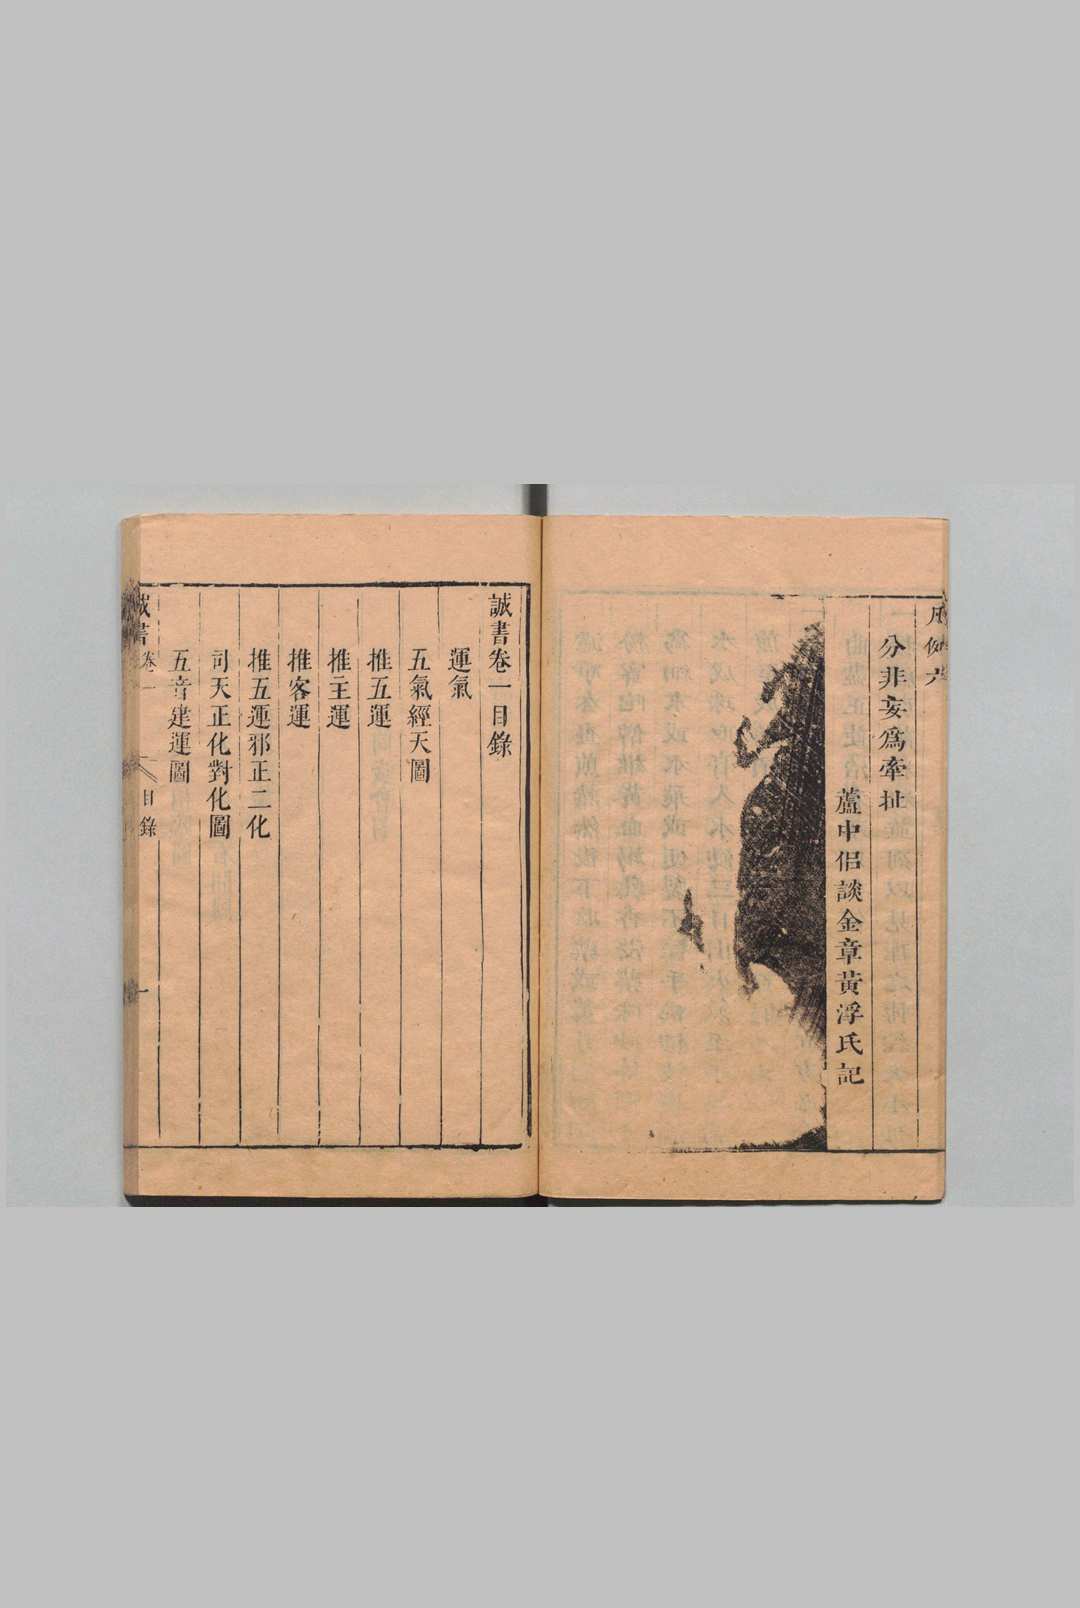 凡例六
分非妄爲牽扯
蘆中侶談金章黃浮氏記
誠書卷一目錄
運氣
五氣經天圖
推五運
推主運
推客運
推五運邪正二化
司天正化對化圖
五音建運圖
誠書 卷一 目錄 一